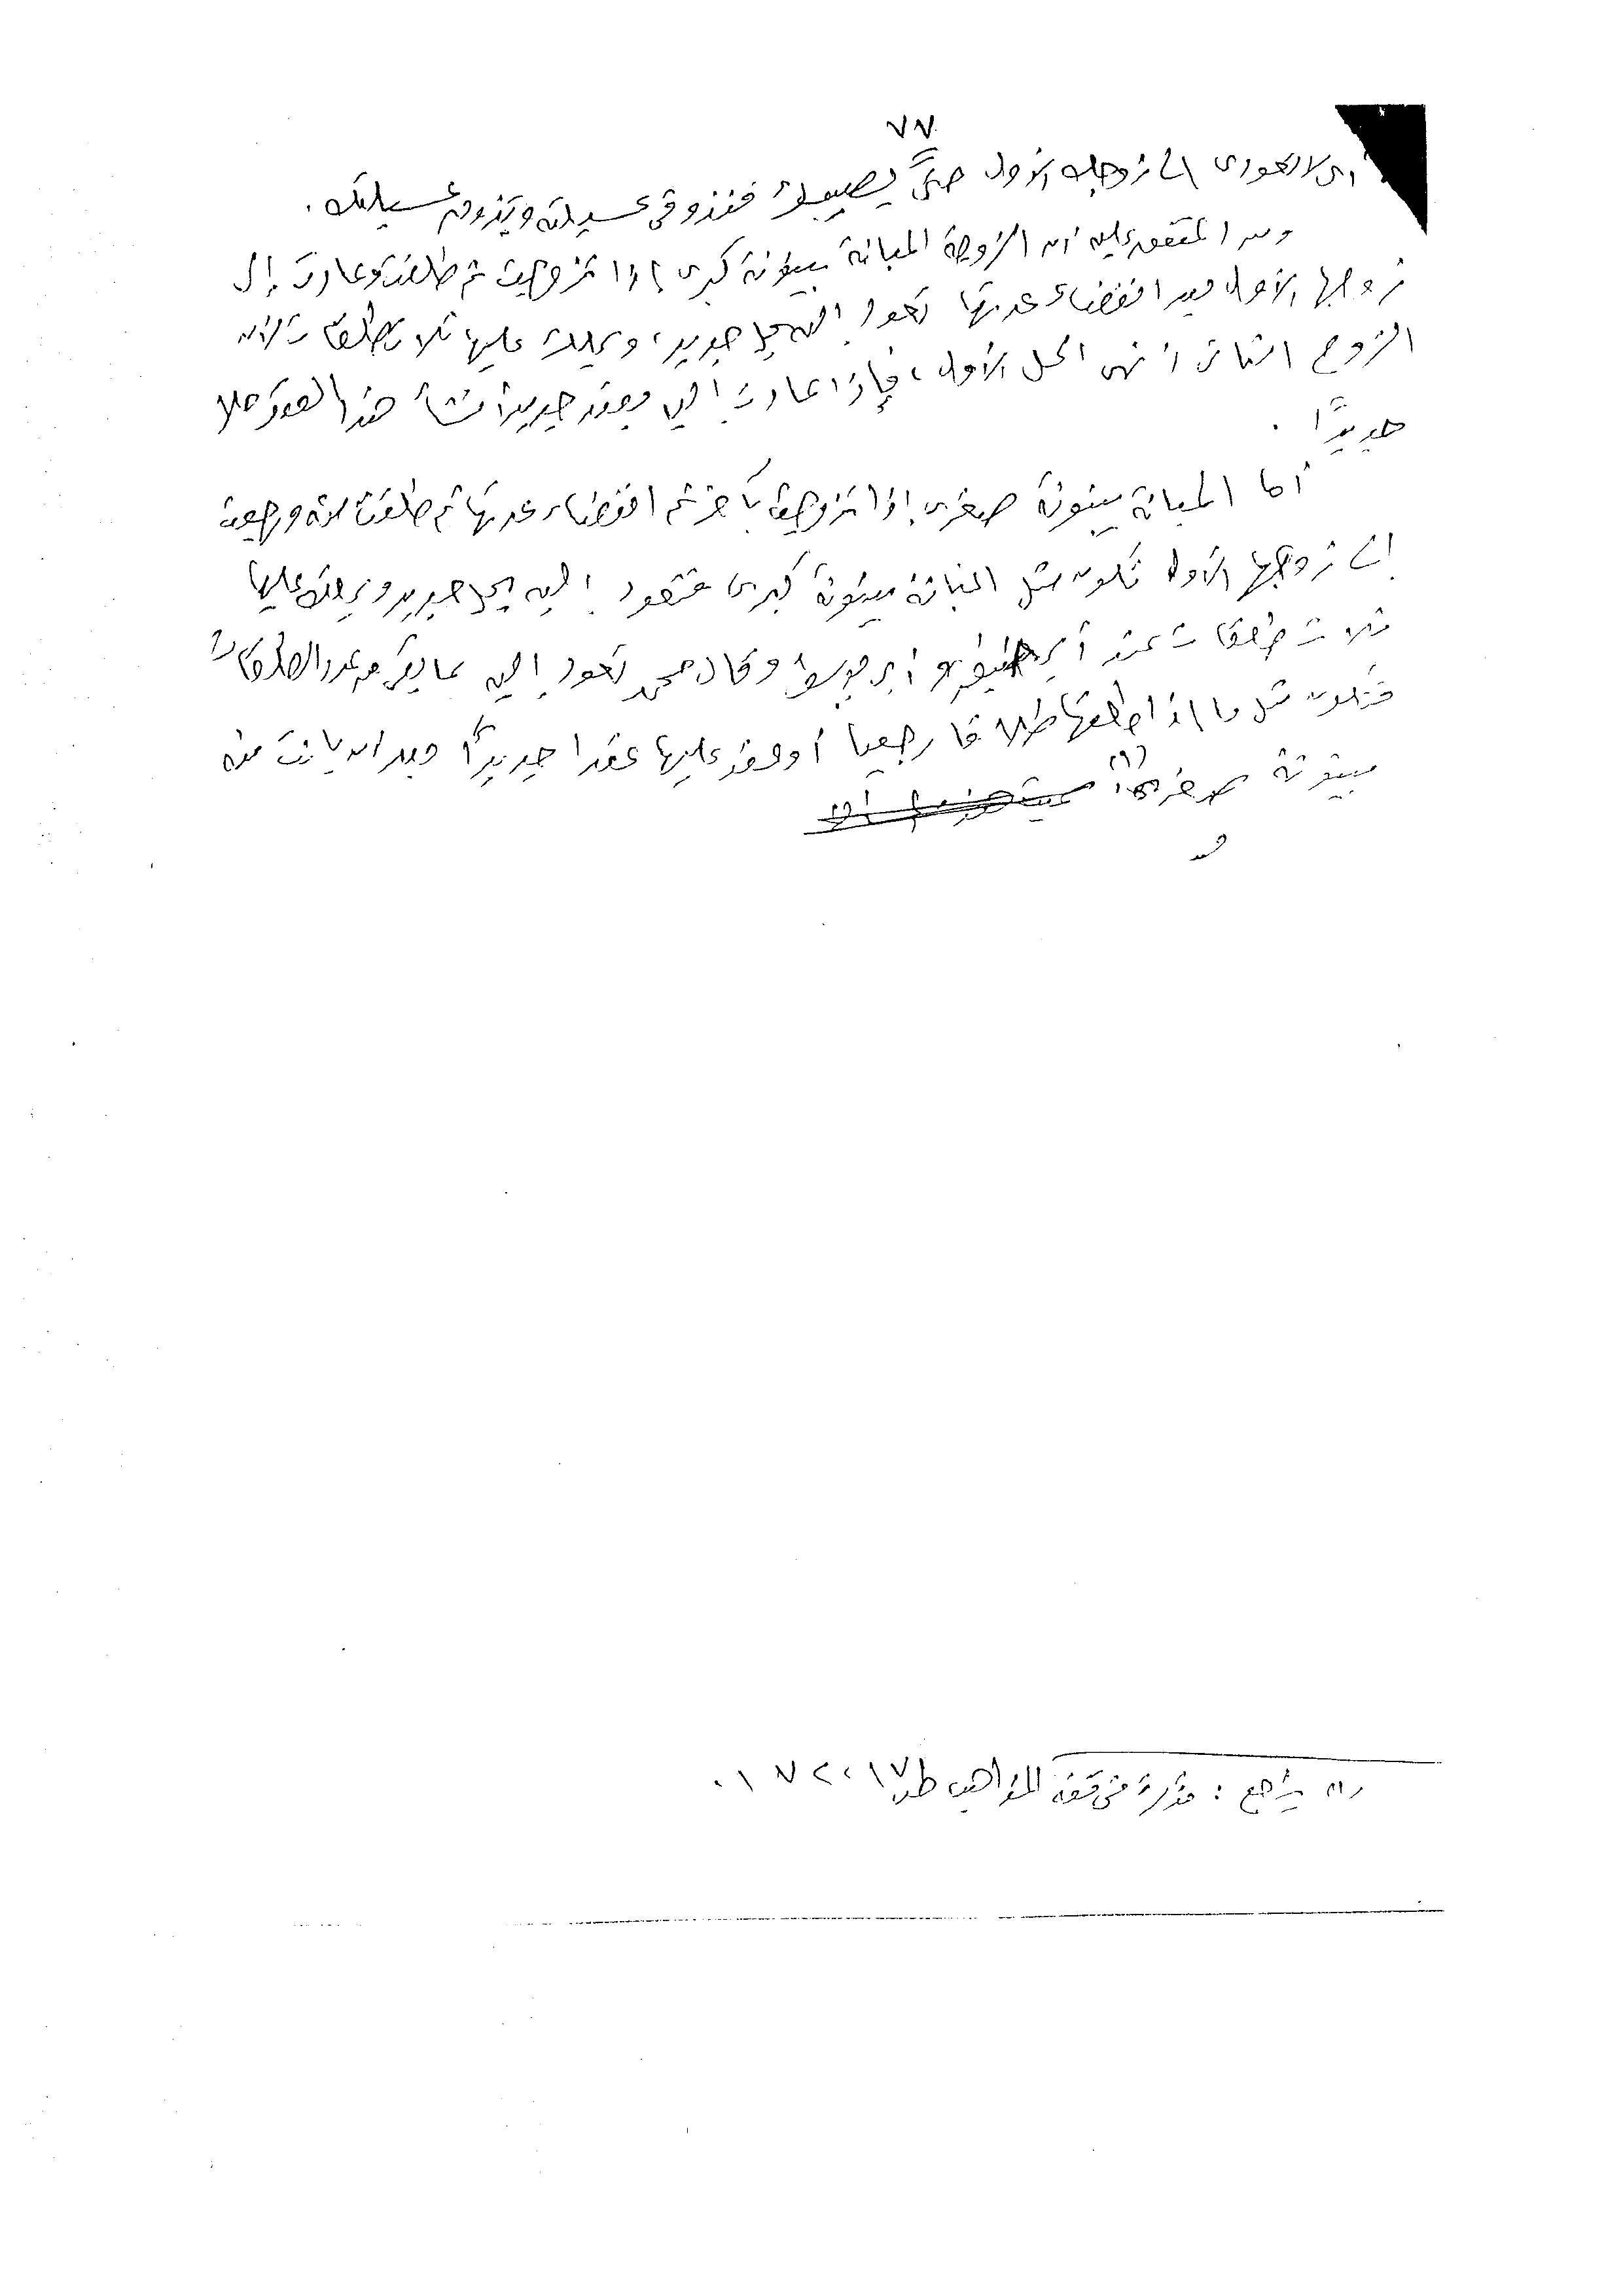 ٧٧
أى لا تعودى إلى زوجك الأول حتى يصيبك فتذوقى عسيلته ويذوق عسيلتك.
ومن المتفق عليه أن الزوجة المبانة بينونة كبرى إذا تزوجت ثم طلقت وعادت إلى
زوجها الأول بعد انقضاء عدتها تعود إليه بحل جديد، ويملك عليها ثلاث طلقات لأن
الزوج الثانى أنهى الحل الأول، فإذا عادت إليه بعقد جديد أنشأ هذا العقد حلا
جديدًا.
أما المبانة بينونة صغرى إذا تزوجت بآخر ثم انقضاء عدتها ثم طلقت منه ورجعت
إلى زوجها الأول تكون مثل المبانة بينونة كبرى فتعود إليه بحل جديد ويملك عليها
ثلاث طلقات عند أبى حنيفة وأبى يوسف وقال محمد تعود إليه بما بقى من عدد الطلقات
فتكون مثل ما إذا طلقها طلاقا رجعيا أو عقد عليها عقدا جديدًا بعد أن بانت منه
بينونة صغرى (١)
(١) يراجع: مذكرة فى فقه المذاهب ط ١٧٢،٧١.